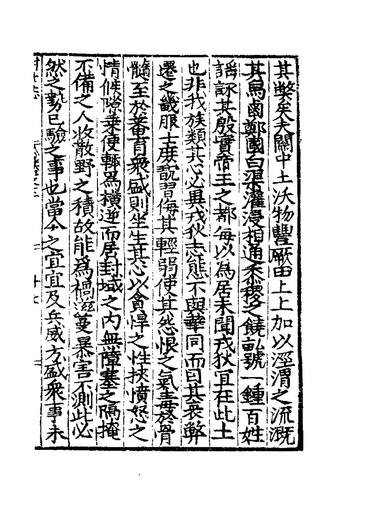 其弊矣夫關中土沃物豐厥田上上加以涇渭之流溉
其舄鹵鄭國白渠灌浸相通黍稷之饒畝號一鍾百姓
謠詠其殷實帝王之都每以為居未聞戎狄宜在此土
也非我族類其心必異戎狄志態不與華同而因其衰弊
遷之畿服士庶翫習侮其輕弱使其怨恨之氣毒於骨
髓至於蕃育衆盛則坐生其心以貪悍之性挾憤怒之
情候隙乘便輒為橫逆而居封域之內無障塞之隔掩
不備之人收散野之積故能為禍滋蔓暴害不測此必
然之勢已驗之事也當今之宜宜及兵威方盛衆事未